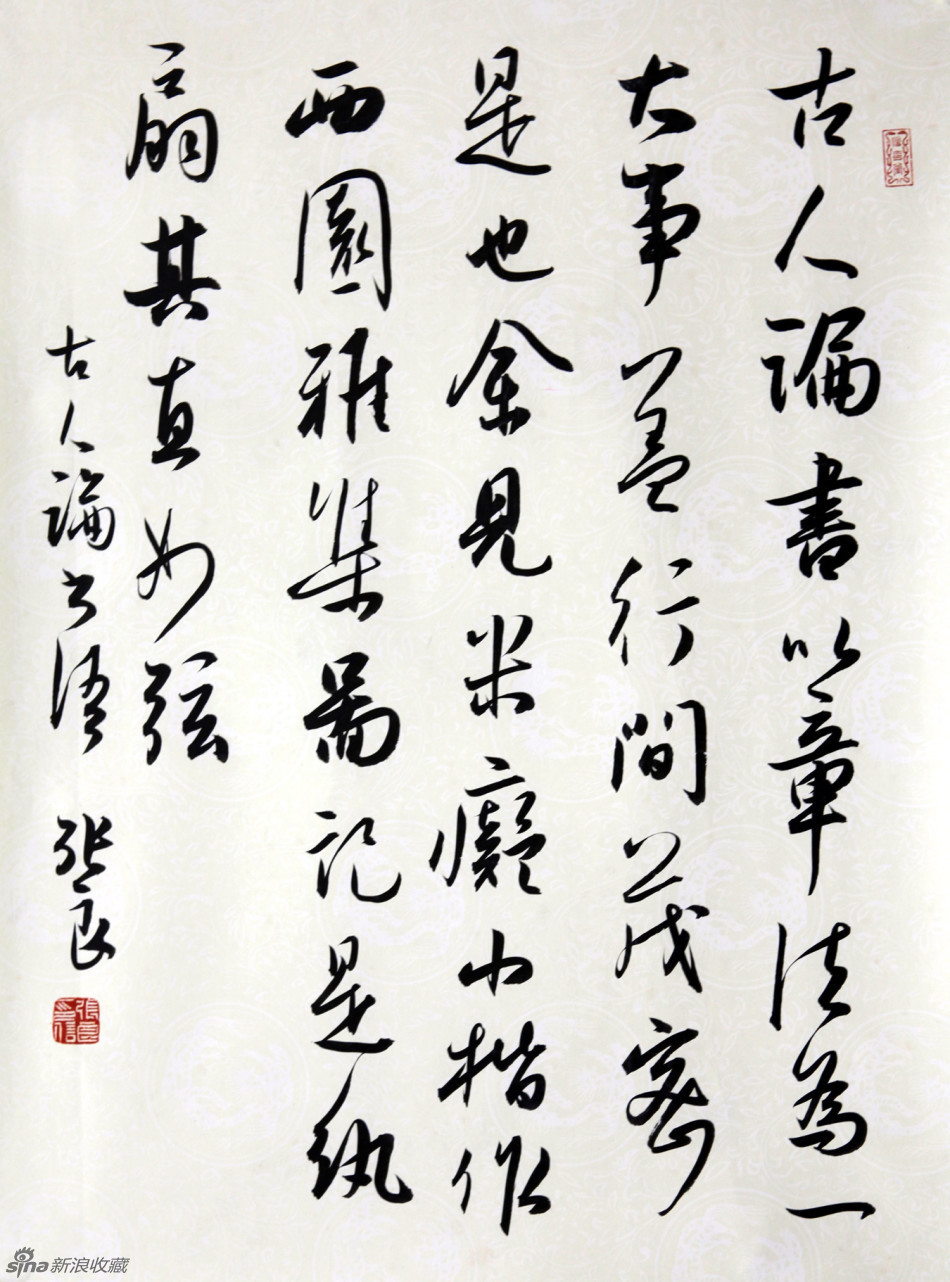 古人論書以章法為一
大事蓋行間茂密
是也余見米癡小楷作
西園雅集圖記是紈
扇其直如弦
古人論书語 張良
sina新浪收藏